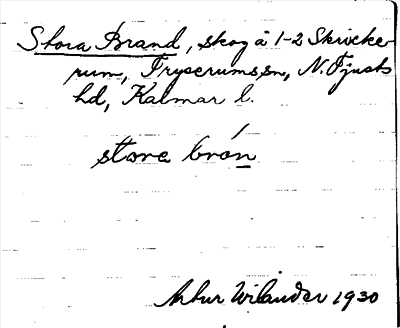 Stora Brand, skog å 1-2 Skricke-
rum, Tryserums sn, N. Tjusts
hd, Kalmar l.
stora brón
Artur Wilander 1930